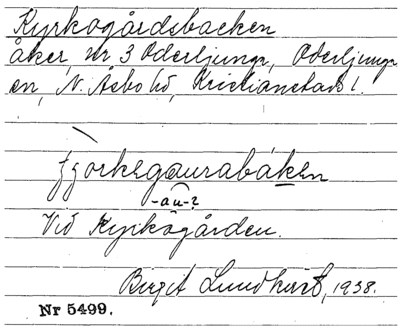 Kyrkogårdsbacken
åker, nr 3 Oderljunga, Oderljunga
sn, N. Åsbo hd, Kristianstads l.
-au-?
Vid Kyrkogården.
Birgit Lundkvist, 1938.
Nr 5499.